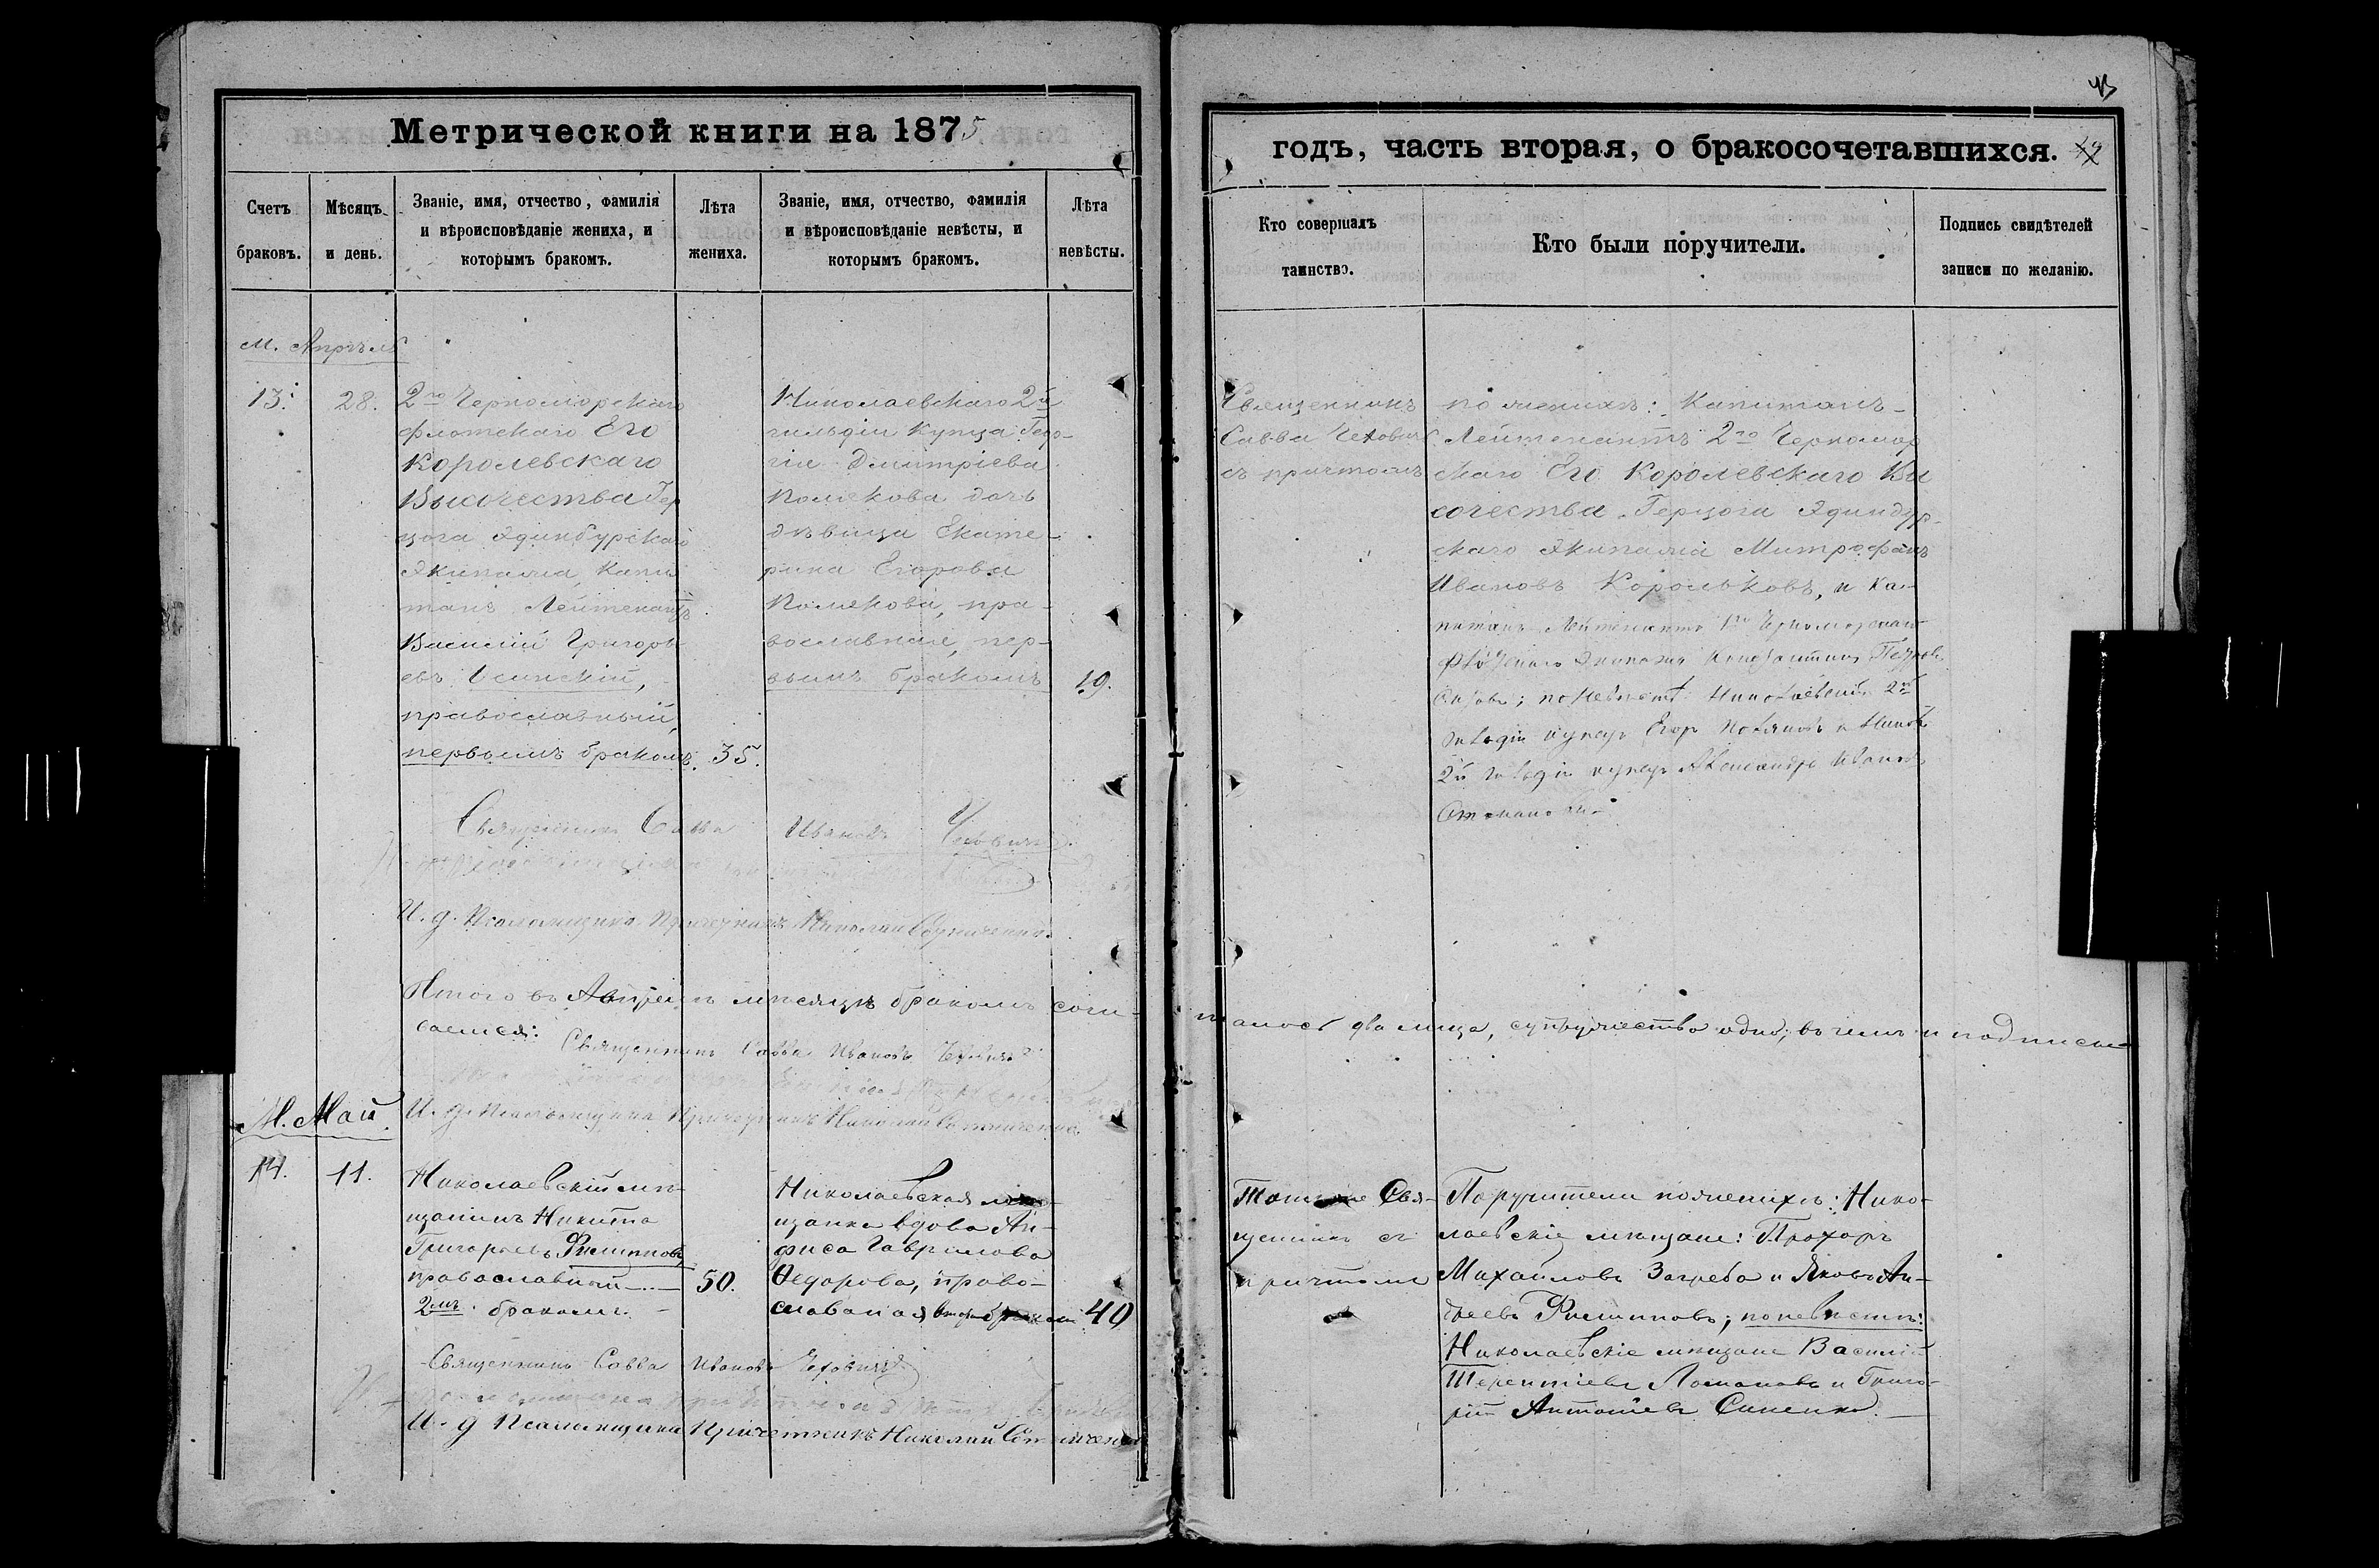 43
Метрической книги на 1875
годъ, часть вторая, о бракосочетавшихся.
Счетъ браковъ.
Мѣсяцъ и день.
Званіе, имя, отчество, фамилія
и вѣроисповѣданіе жениха, и
которымъ бракомъ.
Лѣта жениха.
Званіе, имя, отчество, фамилія
и вѣроисповѣданіе невѣсты, и
которымъ бракомъ.
Лѣта невѣсты.
Кто совершалъ
таинство.
Кто были поручители.
Подпись свидѣтелей
записи по желанію.
М. Апрѣль
13.
28.
2го Черноморскаго
флотскаго Его
Королевскаго
Высочества Гер
цога Эдинбурскаго
Экипажа, Капи
танъ Лейтенантъ
Василій Григорь
евъ Осинскій,
православный,
первымъ бракомъ.
35.
Николаевскаго 2й
гильдіи купца Геор-
гія Дмитріева
Полякова дочь
дѣвица Екате-
рина Егорова
Полякова, пра-
вославная, пер-
вымъ бракомъ
19.
Священникъ
Савва Чехович
съ причтомъ
по женихѣ: Капитанъ-
Лейтенантъ 2го Черномор
скаго Его Королевскаго Вы
сочества Герцога Эдинбур-
скаго Экипажа Митрофанъ
Ивановъ Корольковъ, и Ка-
питанъ Лейтенантъ 1го Черноморскаго
Флотскаго Экипажа Константинъ
по невѣстѣ: Николаевскій 2й
гильдіи купецъ Егоръ Поляковъ и Никол
2й гильдіи купецъ Александръ Ивановъ
Священникъ Савва Ивановъ Чеховичъ
И. д. Псаломщика Причетникъ Николай
Итого въ Апрѣлѣ мѣсяцѣ бракомъ соче-
талось два лица, супружество одно, въ чемъ и подписы
ваемся:
Священникъ Савва Ивановъ Чеховичъ
И. д. Псаломщика Причетникъ Николай
М. Май.
14.
11.
Николаевскій мѣ-
щанинъ Никита
Григорьевъ Филиповъ,
православный
2мъ бракомъ.
50.
Николаевская
щанка вдова Ан-
фиса Гаврилова
Ѳедорова, право-
славная
40
Тотъ же Свя-
щенникъ съ
причтомъ
Поручители по женихѣ: Нико-
лаевскіе мѣщане: Прохоръ
Михайловъ Загреба и Яковъ Ан-
дреевъ Филиповъ; по невѣстѣ:
Николаевскіе мѣщане Василій
Терентіевъ Ломановъ и Григо-
рій Антоніевъ Синенко.
Священникъ Савва Ивановъ Чеховичъ
И. д Псаломщика Причетникъ Николай